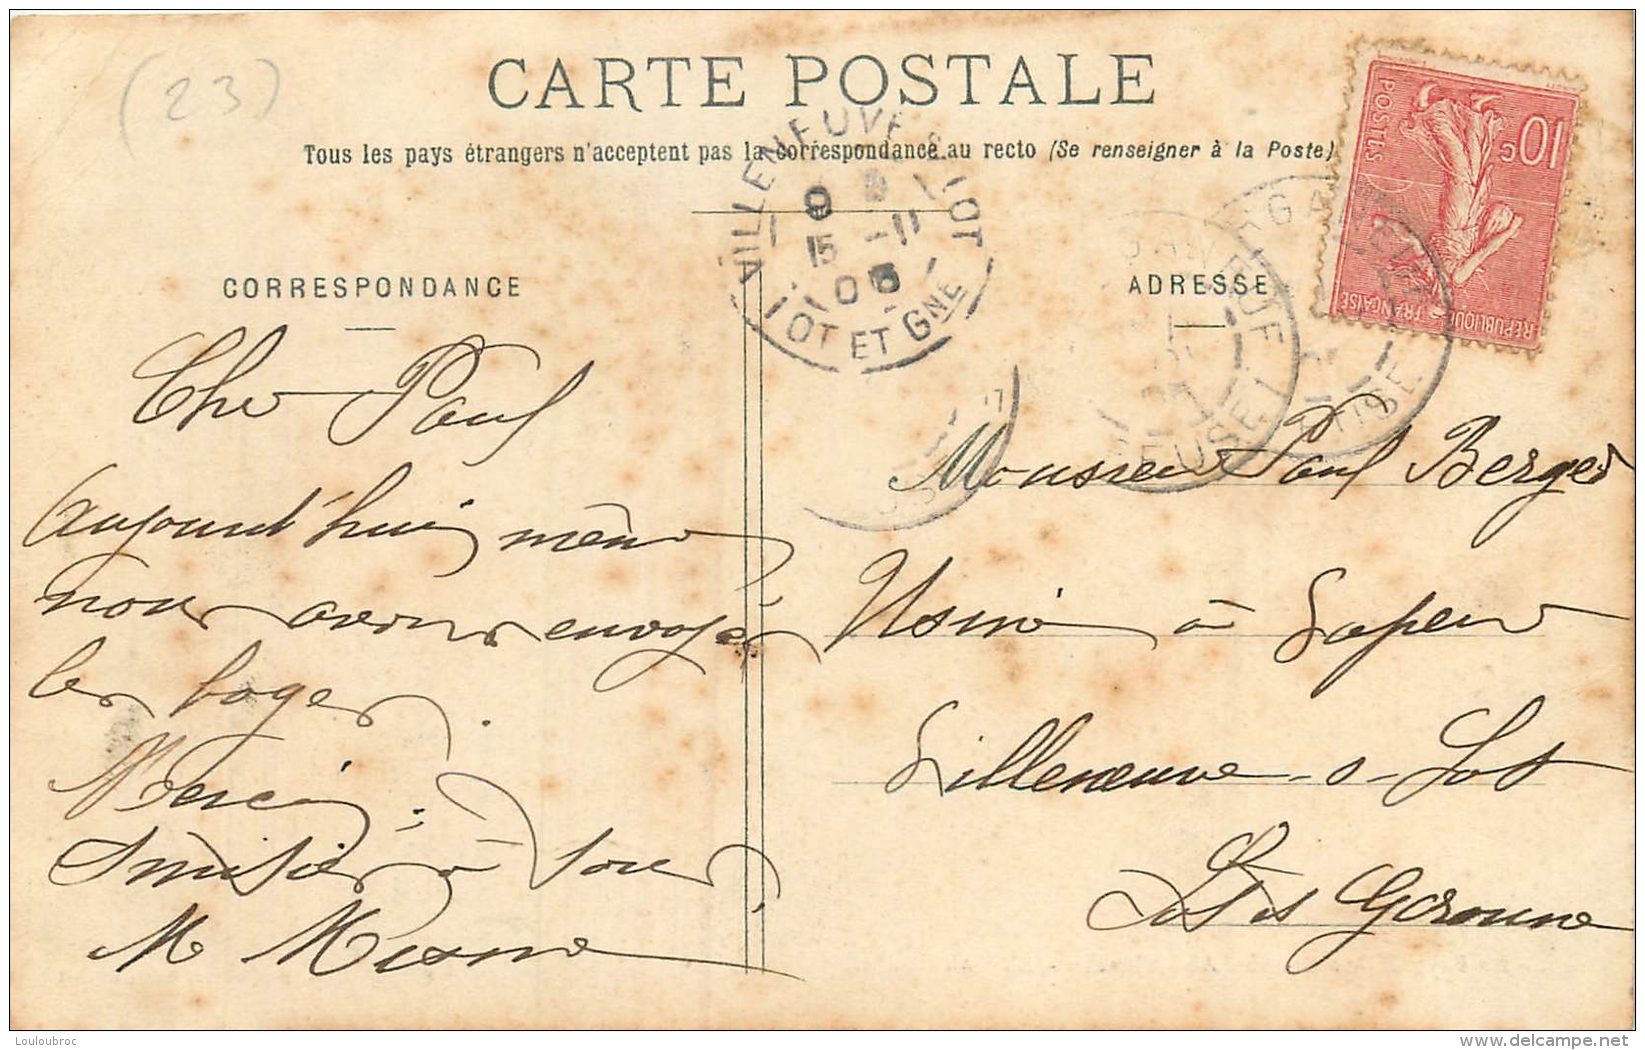 (23)
CARTE POSTALE
Tous les pays étrangers n'acceptent pas la correspondance au recto (Se renseigner à la Poste)
10 c
POSTES
REPUBLIQUE FRANÇAISE
VILLENEUVE S LOT
9
15 -11
05
LOT ET GNE
CORRESPONDANCE
ADRESSE
Cher Paul
Aujourd'hui même
nous avons envoyé
les
Merci.
Amitiés à tous
M
Monsieur Paul Berger
Usine à
Villeneuve-s-Lot
Lot et Garonne
Louloubroc
delcampe.net